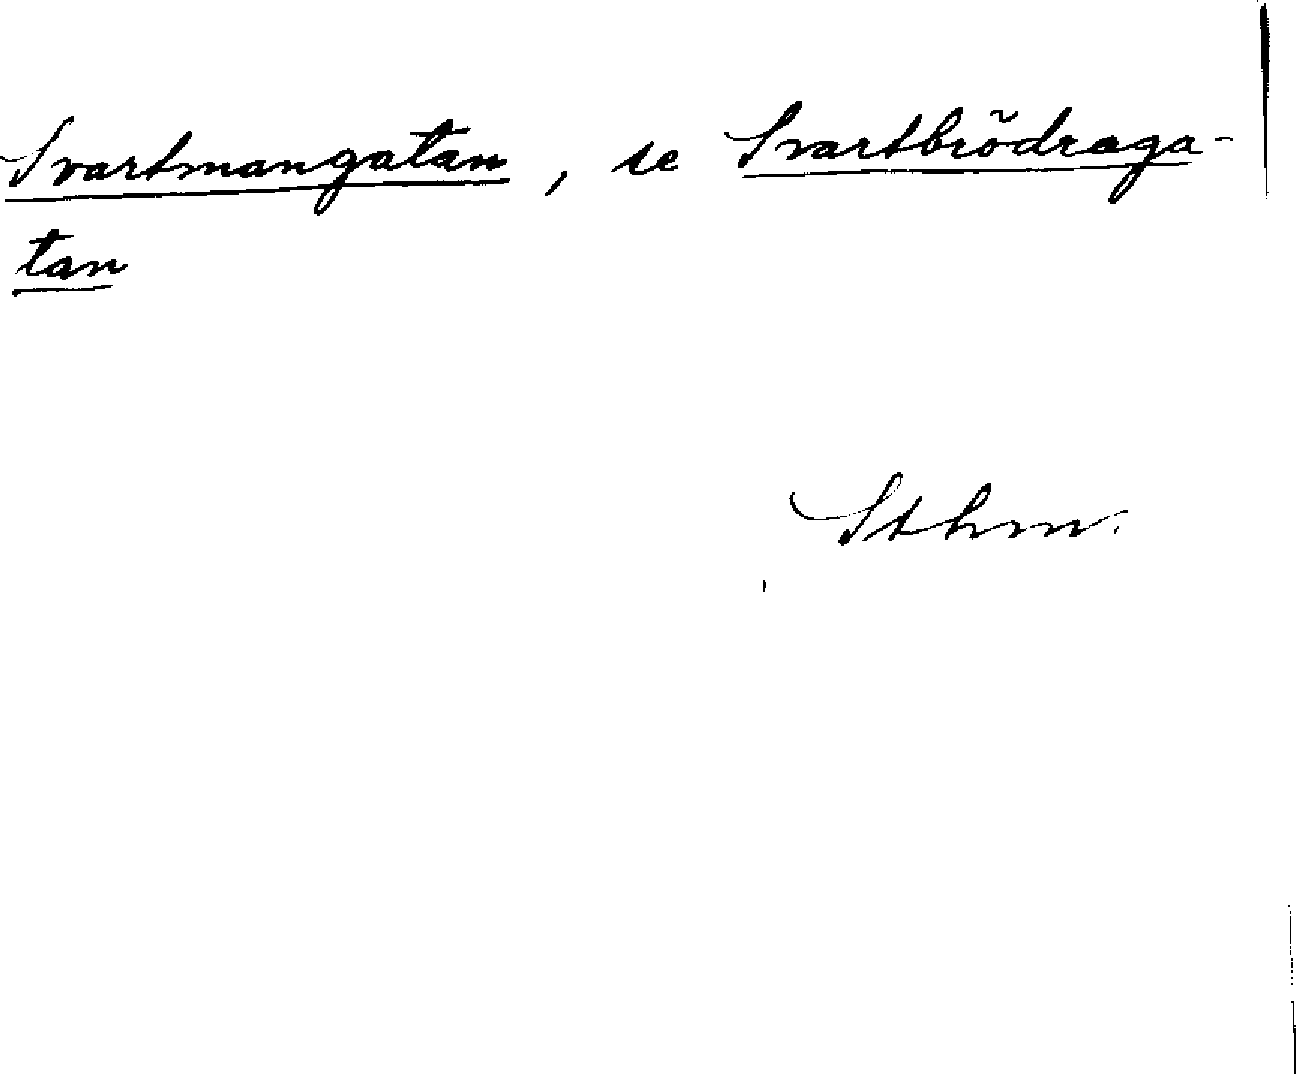 Svartmangatan, se Svartbrödraga-
tan
Sthm.